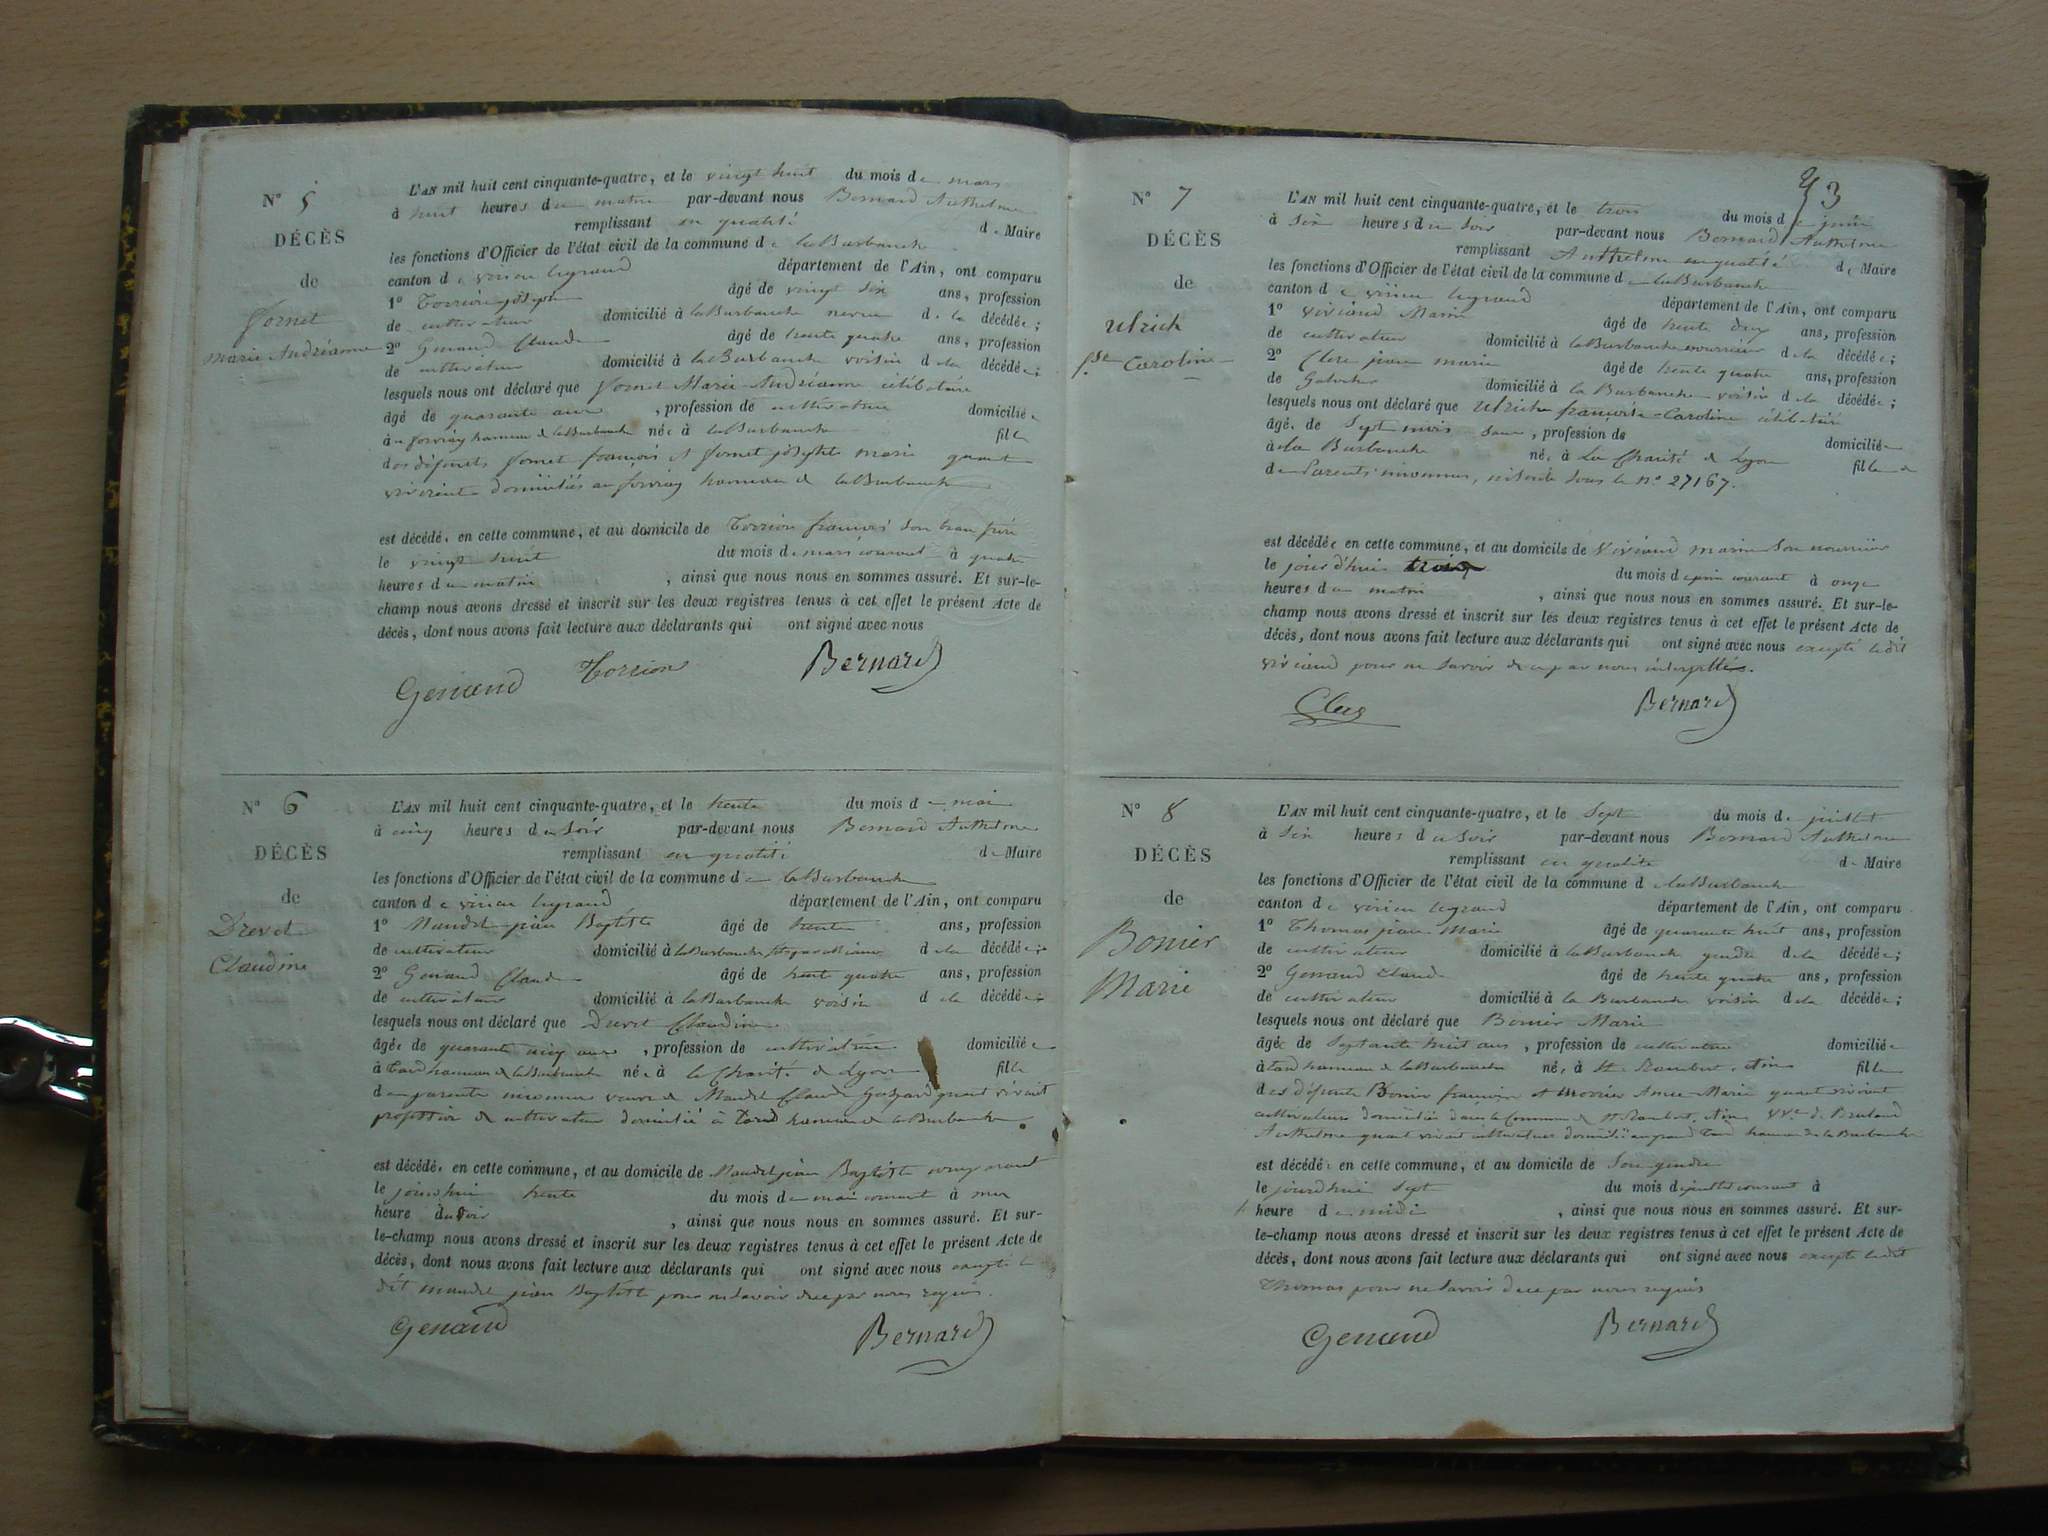 N° 5
DÉCÈS
de
Fornet
Marie Andréanne
L'AN mil huit cent cinquante-quatre, et le vingt huit du mois de mars
à huit heures du matin par-devant nous Bernard Anthelme
remplissant en qualité de Maire
les fonctions d'Officier de l'état civil de la commune de la Burbanche
canton de virieu legrand département de l'Ain, ont comparu
1° Torrion joseph âgé de vingt six ans, profession
de cultivateur domicilié à la Burbanche neveu de la décédée;
2° Genand Claude âgé de trente quatre ans, profession
de cultivateur domicilié à la Burbanche voisin de la décédée;
lesquels nous ont déclaré que fornet Marie Andréanne célibataire
âgé de quarante ans, profession de cultivatrice domiciliée
hameau de la Burbanche née à la Burbanche fille
des défunts fornet françois et fornet josephte marie quand
vivaient domiciliés au hameau de la Burbanche
est décédé, en cette commune, et au domicile de Torrion françois son beau frère
le vingt huit du mois de mars courant à quatre
heures du matin, ainsi que nous nous en sommes assuré. Et sur-le-
champ nous avons dressé et inscrit sur les deux registres tenus à cet effet le présent Acte de
décès, dont nous avons fait lecture aux déclarants qui ont signé avec nous
Genand Torrion Bernard
N° 6
DÉCÈS
de
Drevet
Claudine
L'AN mil huit cent cinquante-quatre, et le trente du mois de mai
à cinq heures du soir par-devant nous Bernard Anthelme
remplissant en qualité de Maire
les fonctions d'Officier de l'état civil de la commune de la Burbanche
canton de virieu legrand département de l'Ain, ont comparu
1° Mandet jean Baptiste âgé de trente ans, profession
de cultivateur domicilié à la Burbanche de la décédée;
2° Genand Claude âgé de trente quatre ans, profession
de cultivateur domicilié à la Burbanche voisin de la décédée;
lesquels nous ont déclaré que Drevet Claudine
âgée de quarante cinq ans, profession de cultivatrice domiciliée
à Tard hameau de la Burbanche née à la Charité de Lyon fille
de parents inconnus veuve de Mandet Claude Gaspard quand vivait
profession de cultivateur domicilié à Tard hameau de la Burbanche
est décédé, en cette commune, et au domicile de Mandet jean Baptiste
le jourdhui trente du mois de mai courant à une
heure du soir, ainsi que nous nous en sommes assuré. Et sur-
le-champ nous avons dressé et inscrit sur les deux registres tenus à cet effet le présent Acte de
décès, dont nous avons fait lecture aux déclarants qui ont signé avec nous excepté le
dit mandet jean Baptiste pour ne savoir de ce par nous requis.
Genand Bernard
93
N° 7
DÉCÈS
de
Ulrich
fse Caroline
L'AN mil huit cent cinquante-quatre, et le trois du mois de juin
à six heures du soir par-devant nous Bernard Anthelme
remplissant Anthelme en qualité de Maire
les fonctions d'Officier de l'état civil de la commune de la Burbanche
canton de virieu legrand département de l'Ain, ont comparu
1° Viviand Marin âgé de trente deux ans, profession
de cultivateur domicilié à la Burbanche nourricier de la décédée;
2° Clerc jean marie âgé de trente quatre ans, profession
de domicilié à la Burbanche voisin de la décédée;
lesquels nous ont déclaré que Ulrich françoise Caroline célibataire
âgée de sept mois sans, profession de domiciliée
à la Burbanche née à La Charité de Lyon fille
de Parents inconnus, inscrite sous le n° 27167.
est décédée en cette commune, et au domicile de Viviand marin son nourricier
le jour d'hui trois du mois de juin courant à onze
heures du matin, ainsi que nous nous en sommes assuré. Et sur-le-
champ nous avons dressé et inscrit sur les deux registres tenus à cet effet le présent Acte de
décès, dont nous avons fait lecture aux déclarants qui ont signé avec nous excepté ledit
viviand pour ne savoir de ce par nous interpellé.
Clerc Bernard
N° 8
DÉCÈS
de
Bonier
Marie
L'AN mil huit cent cinquante-quatre, et le sept du mois de juillet
à six heures du soir par-devant nous Bernard Anthelme
remplissant en qualité de Maire
les fonctions d'Officier de l'état civil de la commune de la Burbanche
canton de virieu legrand département de l'Ain, ont comparu
1° Thomas jean Marie âgé de quarante huit ans, profession
de cultivateur domicilié à la Burbanche gendre de la décédée;
2° Genand Claude âgé de trente quatre ans, profession
de cultivateur domicilié à la Burbanche voisin de la décédée;
lesquels nous ont déclaré que Bonier Marie
âgée de septante huit ans, profession de cultivatrice domiciliée
à tard hameau de la Burbanche née à St Rambert, Ain fille
des défunts Bonier françois et Anne Marie quand vivaient
cultivateurs domiciliés dans la Commune de St Rambert, Ain Vve de
Anthelme quand vivait cultivateur domicilié au grand Tard hameau de la Burbanche
est décédé, en cette commune, et au domicile de son gendre
le jourdhui sept du mois de juillet courant à
heure de midi, ainsi que nous nous en sommes assuré. Et sur-
le-champ nous avons dressé et inscrit sur les deux registres tenus à cet effet le présent Acte de
décès, dont nous avons fait lecture aux déclarants qui ont signé avec nous excepté ledit
Thomas pour ne savoir de ce par nous requis
Genand Bernard